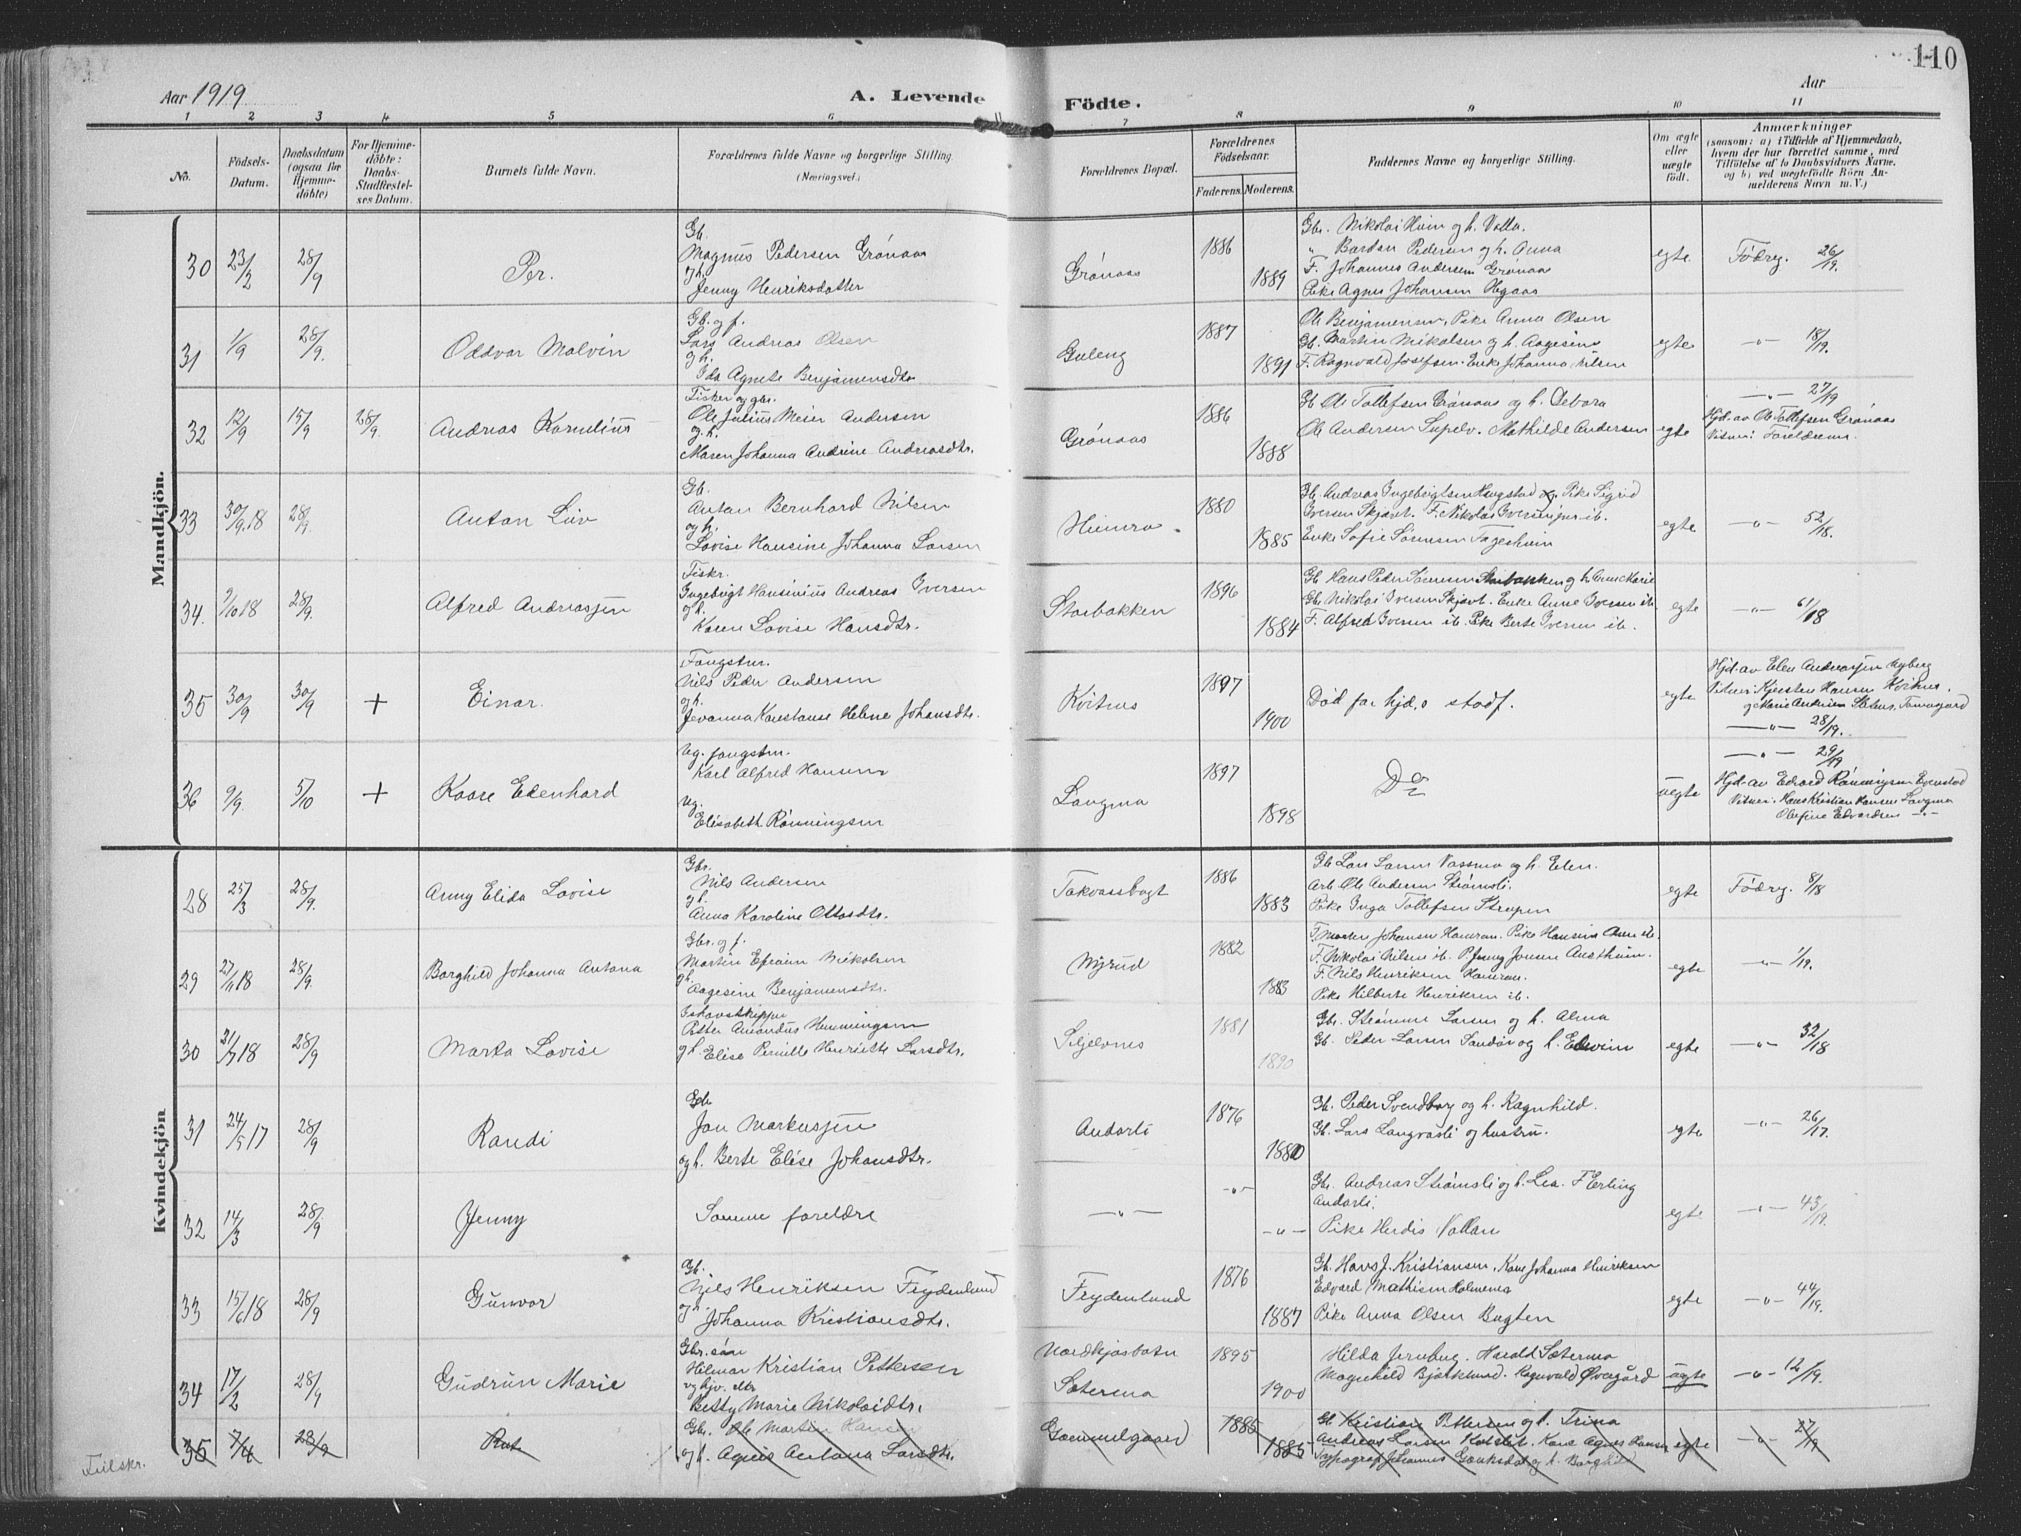 110
Aar 1919
A. Levende Födte.
Aar
1 2 3 4 5 6 7 8 9 10 11
No.
Födsels-Datum.
Daabsdatum (ogsaa for Hjemme-döbte)
For Hjemme-döbte: Daabs-Stadfæstel-ses Datum.
Barnets fulde Navn.
Forældrenes fulde Navne og borgerlige Stilling.
(Næringsvei.)
Forældrenes Bopæl.
Forældrenes Födselsaar.
Faderens. Moderens.
Faddernes Navne og borgerlige Stilling.
Om ægte eller uægte födt.
Anmærkninger
(saasom: a) i Tilfælde af Hjemmedaab, hvem der har forrettet samme, med Tilföielse af to Daabsvidners Navne, og b) ved uægtefödte Börn An-melderens Navn m. V.)
Mandkjön.
30 23/2 28/9 Per.
Gb.
Magnus Pedersen Grønaas
og h.
Jenny Henriksdatter
Grønaas 1886 1889
Gbr. Nikolai Hein og h. Valla
" Bardon Pedersen og h. Anna
F. Johannes Andersen Grønaas
Pike Agnes Johansen Hegaas
egte Fødrg. 26/19.
31 1/9 28/9. Oddvar Malvin
Gb. og f.
Lars Andreas Olsen
og h.
Ida Agnete Benjamensdtr
Guleng 1887 1891
Ole Benjamensen, Pike Anna Olsen
Gb. Martin Nikolsen og h. Aagesine
F. Ragnvald Josefsen. Enke Johanna Nilsen
egte -"- 18/19.
32 12/9 15/9 28/9. Andreas Kornelius
Fisker og gbr.
Ole Julius Meier Andersen
og h.
Maren Johanna Andrine Andreasdtr.
Grønaas 1886 1888
Gb Ole Tollefsen Grønaas og h. Debora
Ole Andersen Mathilde Andersen
egte -"- 27/19
Hjd. av Ole Tollefsen Grønaas
Vitner: Foreldrene.
33 30/9.18 28/9. Anton Liiv
Gb.
Anton Bernhard Nilsen
og h.
Lovise Hansine Johanna Larsen
Heimro 1880 1885
Gb. Andreas Ingebrigtsen Haugstad og Pike Sigrid
Iversen Skjævt. F. Nikolai Iversen ib.
Enke Sofie Sørensen Fagerheim
egte -"- 52/18.
34. 7/10 18 28/9. Alfred Andreasjen
Fiskr.
Ingebrigt Hansinius Andreas Iversen
og h.
Karen Lovise Hansdtr.
Storbakken 1896 1884
Gb Hans Peder Sørensen Storbakken og h. Anne Marie
Gb. Nikolai Iversen Skjævt. Enke Anne Iversen ib.
F. Alfred Iversen ib. Pike Berte Iversen ib.
egte -"- 61/18
35 30/9 30/9 + Einar.
Fangstm.
Nils Peder Andersen
og h.
Jevanna Konstanse Helene Johansdtr.
Kvitnes 1897 1900
Død før hjd.s stadf.
egte
Hjd. av Elen Andreasjen Nyberg
Vitner: Kjersten Hansen Kvitnes.
og Marie Andersen
-"- 28/19.
36 9/9. 5/10 + Kaare Edenhard
Ug. fangstm.
Karl Alfred Hansen
Ug.
Elisabeth Rønningsen
Langmo 1897 1898
Do
uegte
-"- 29/19
Hjd. av Edvard Rønningsen
Vitner: Hans Kristian Hansen Langmo
Olufine Edvardsen -"-
Kvindekjön
28 25/3 28/9. Anny Elida Lovise
Gbr.
Nils Andersen
og h.
Anna Karoline Ottosdtr.
Takvassbugt 1886 1883
Gb Lars Larsen Vassmo og h. Elen.
Arb. Ole Andersen Strømsli.
Pike Inga Tollefsen Strupen
egte Fødrg. 8/18
29 27/11 18 28/9. Borghild Johanna Antona
Gbr. og f.
Martin Efraim Nikolsen
og h.
Aagesine Benjamensdtr.
Nyrud 1882 1883
F. Morten Johansen Hamran. Pike Hansine Olsen ib.
F. Nikolai Nilsen ib. P. Jenny Jonsen Austheim.
F. Nils Henriksen Hamran.
Pike Hilberte Henriksen ib.
egte -"- 1/19.
30 21/7 18 28/9 Marta Lovise
Ishavsskipper
Petter Amandus Henningsen
og h. Elise Pernille Henriette Larsdtr.
Siljelvnes 1881 1890
Gbr. Strømme Larsen og h. Alma
Gb. Peder Larsen Sandøv og h. Edevine
egte -"- 32/18
31 24/5 17 28/9 Randi
Gb
Jon Markusjen
og h. Berte Elise Johansdtr.
Andorli 1876 1880
Gb. Peder Svendborg og h. Ragnhild.
Gb. Lars Langvasli og hustru.
egte -"- 26/17.
32 14/3 28/9 Jenny
Samme foreldre
-"- -"- -"-
Gbr. Andreas Strømsli og h. Lea. F. Erling
Andorli.
Pike Herdis Vollan
egte -"- 43/19.
33 15/6 18 28/9 Gunvor
Gb.
Nils Henriksen Frydenlund
og h.
Johanna Kristiansdtr.
Frydenlund 1876 1887
Gb. Hans J. Kristiansen, Kone Johanna Henriksen
Edvard Mathisen Holmenes
Pike Anna Olsen Bugten
egte -"- 44/19.
34 17/2 28/9 Gudrun Marie
Gbr. søn
Hilmar Kristian Pettersen
og hjv. dtr
Betty Marie Nikolaidtr.
Nordkjosbotn
Sætermo 1895 1900
Hilda Jernberg. Harald Sætermo
Magnhild Bjørklund. Ragnvald Øvergård
uegte -"- 12/19.
35 7/4 28/9 Rut
Gbr. Ole Martin Hansen
og h. Agnes Antona Larsdtr.
Gammelgaard 1885 1885
Gb Kristian Pettersen og h. Trina
Andreas Larsen Kone Agnes Hansen
Typograf Johannes og h. Borghild
egte -"- 27/19
Feilskr.